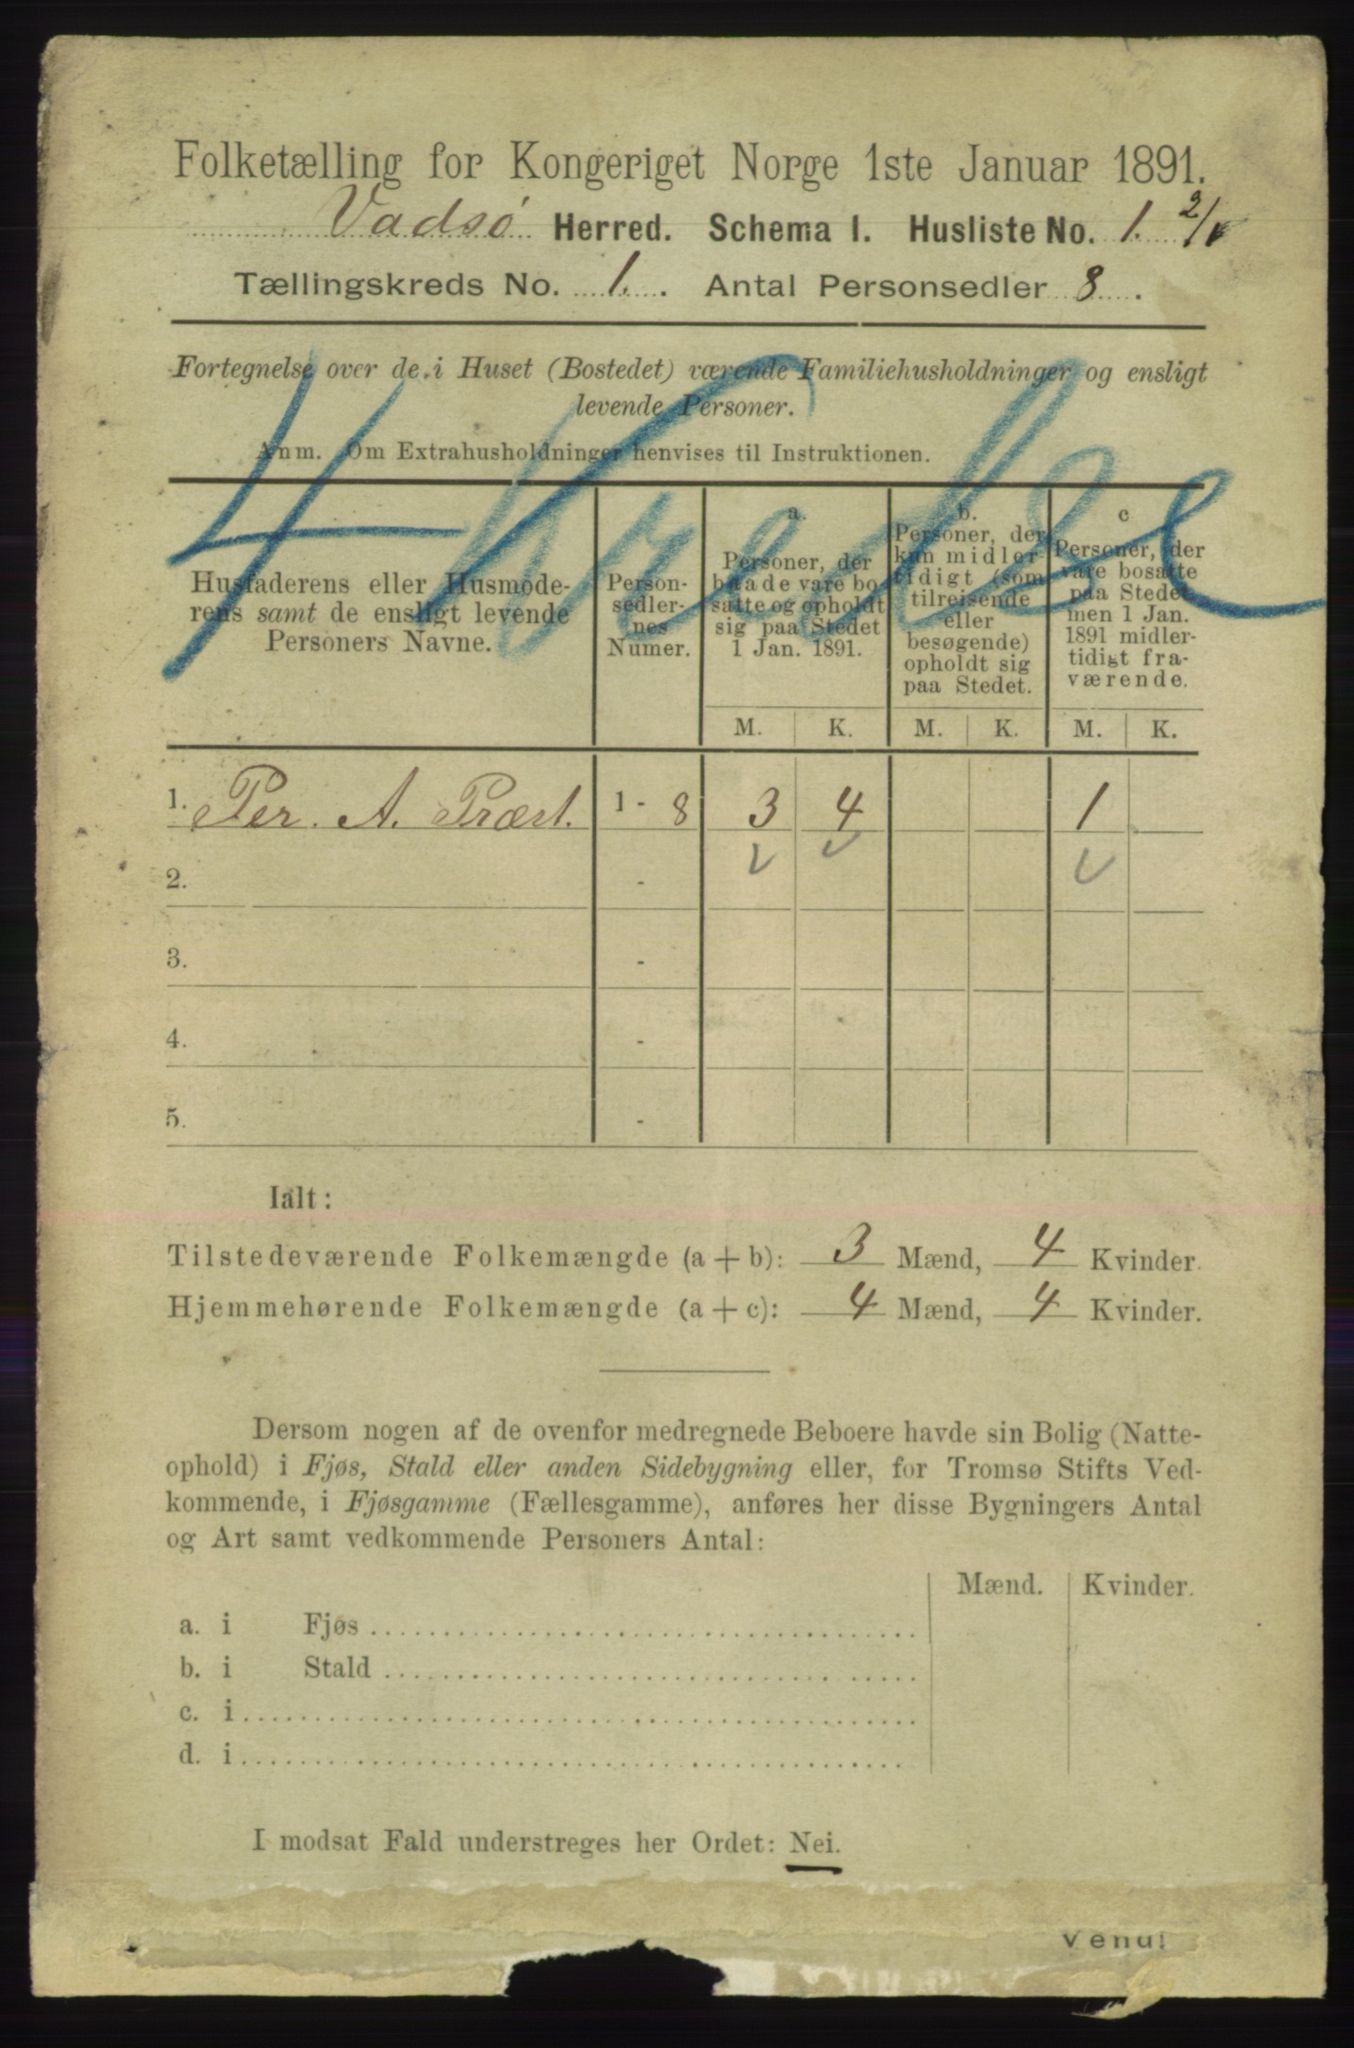 Folketælling for Kongeriget Norge 1ste Januar 1891.
Vadsø Herred. Schema I. Husliste No. 1. 2/1
Tællingskreds No. 1. Antal Personsedler 8.
Fortegnelse over de i Huset (Bostedet) værende Familiehusholdninger og ensligt
levende Personer.
Anm. Om Extrahusholdninger henvises til Instruktionen.
4 Kredse
Husfaderens eller Husmode-
rens samt de ensligt levende
Personers Navne.
Person-
sedler-
nes
Numer.
a.
Personer, der
baade vare bo-
satte og opholdt
sig paa Stedet
1 Jan. 1891.
b.
Personer, der
kun midler-
tidigt (som
tilreisende
eller
besøgende)
opholdt sig
paa Stedet.
c
Personer, der
vare bosatte
paa Stedet
men 1 Jan.
1891 midler-
tidigt fra-
værende.
M. K. M. K. M. K.
1. Per. A. Præst. 1 - 8 3 4 1
2. -
3. -
4. -
5. -
Ialt:
Tilstedeværende Folkemængde (a + b): 3 Mænd, 4 Kvinder.
Hjemmehørende Folkemængde (a + c): 4 Mænd, 4 Kvinder.
Dersom nogen af de ovenfor medregnede Beboere havde sin Bolig (Natte-
ophold) i Fjøs, Stald eller anden Sidebygning eller, for Tromsø Stifts Ved-
kommende, i Fjøsgamme (Fællesgamme), anføres her disse Bygningers Antal
og Art samt vedkommende Personers Antal:
Mænd. Kvinder.
a. i Fjøs
b. i Stald
c. i
d. i
I modsat Fald understreges her Ordet: Nei.
Vend!